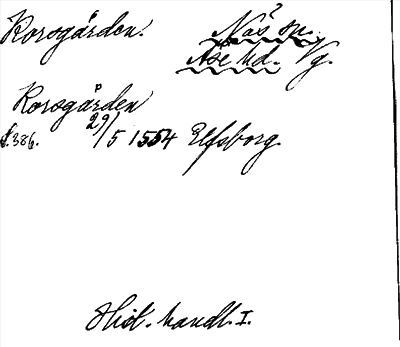 Korsgården. Näs sn.
Åse hd. Vg.
Korsgården
s. 386. 29/5 1554 Elfsborg.
Hist. handl. I.